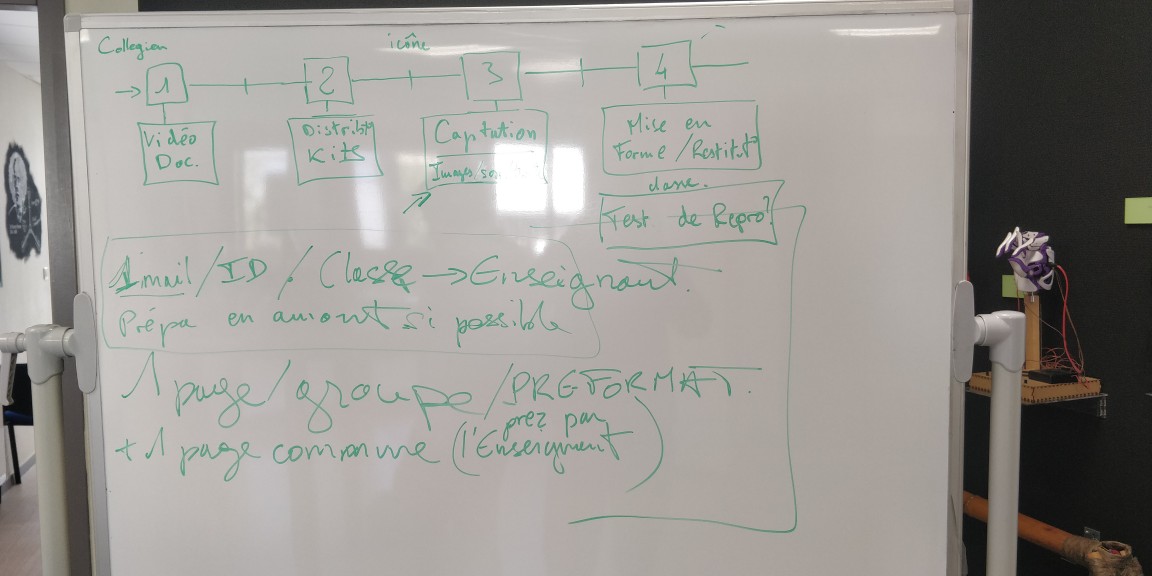 Collegien
icône
→ 1 2 3 4
Vidéo
Doc.
Distrib
Kits
Captation
Images/
Mise en
Forme /Restitut°
classe.
Test de Repro?
1 mail / ID / Classe → Enseignant.
Prépa en amont si possible
1 page/groupe/PREFORMAT.
+ 1 page commune (prez par
l'Enseignant)